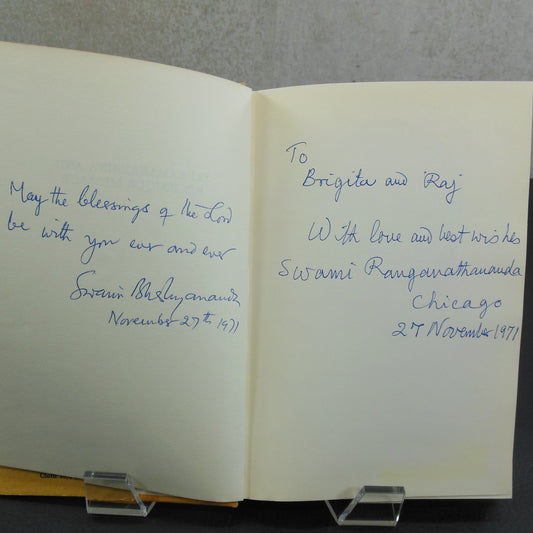 May the blessings of the Lord
be with you ever and ever
Swami Bhashyananda
November 27th 1971
To
Brigita and Raj
With love and best wishes
Swami Ranganathananda
Chicago
27 November 1971